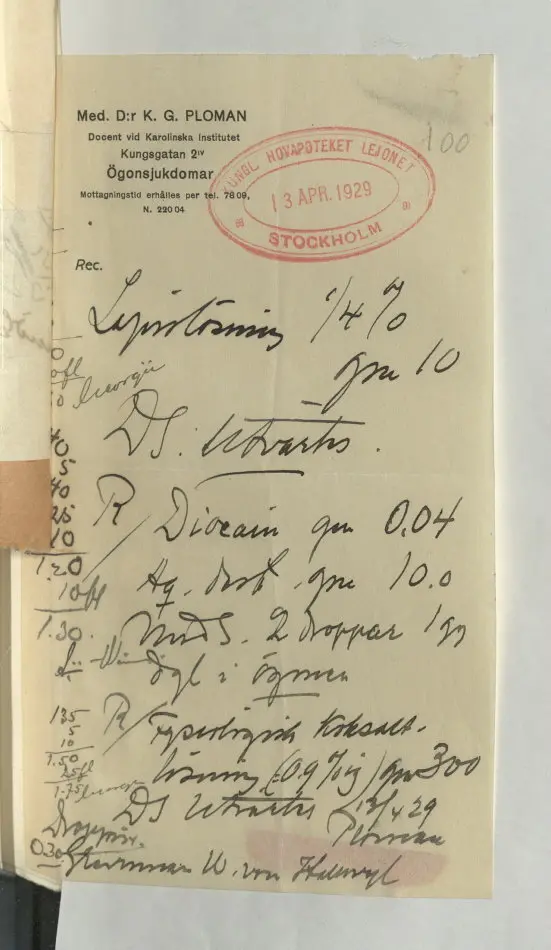 Med. D:r K. G. PLOMAN
Docent vid Karolinska Institutet
Kungsgatan 2 IV
Ögonsjukdomar
Mottagningstid erhålles per tel. 7809,
N. 22004
KUNGL. HOVAPOTEKET LEJONET
13 APR. 1929
STOCKHOLM
100
Rec.
Lapislösning 1/4 %
gm 10
DS. Utvärtes.
R/ Diocain gm 0.04
Aq. dest. gm 10.0
MDS. 2 droppar 1 gg
dgl i ögonen
R/ Fysiologisk Koksalt-
lösning (0.9 %ig) gm 300
DS Utvärtes 13/4 29
Ploman
W. von Hallwyl
40
5
40
25
10
1.20
10 fl
1.30.
135
5
10
1.50
25 fl
1.75
030